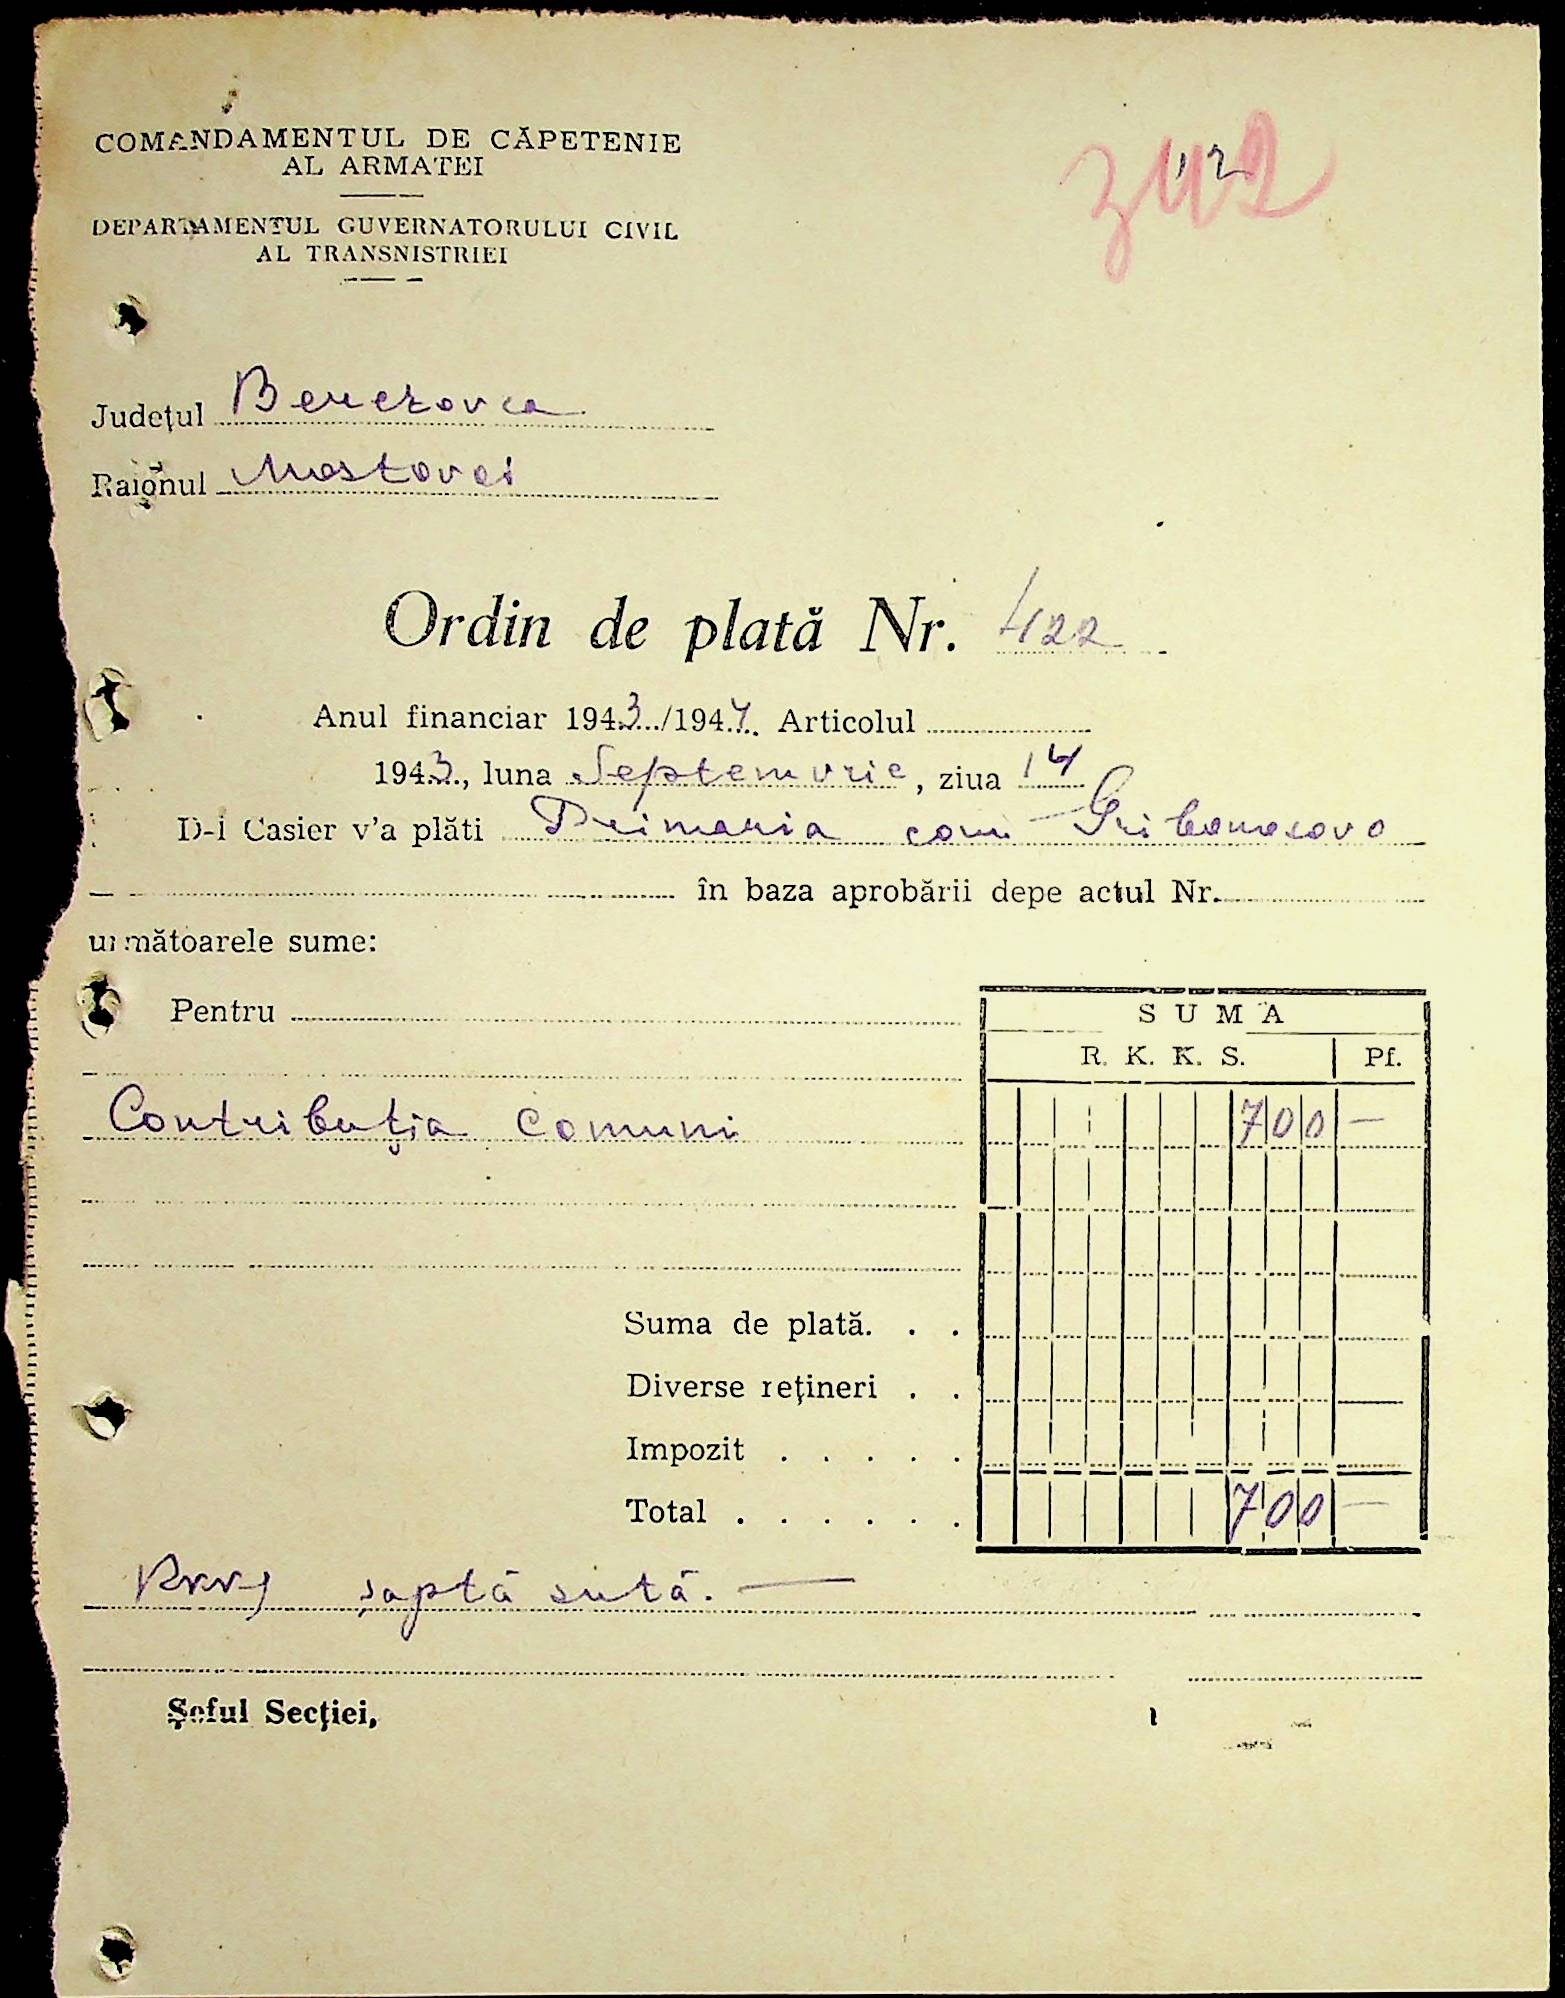 COMANDAMENTUL DE CĂPETENIE
AL ARMATEI
DEPARTAMENTUL GUVERNATORULUI CIVIL
AL TRANSNISTRIEI
342
Județul Berezovca
Raionul Mostovoi
Ordin de plată Nr. 422
Anul financiar 1943/1944 Articolul
1943, luna Septemvrie, ziua 14
D-l Casier v'a plăti Primaria com Gribonosovo
în baza aprobării depe actul Nr.
următoarele sume:
Pentru
SUMA
R. K. K. S. Pf.
Contribuția comuni 700 —
Suma de plată. . .
Diverse rețineri . .
Impozit . . . . .
Total . . . . . . 700 —
șaptă sută. —
Șeful Secției,